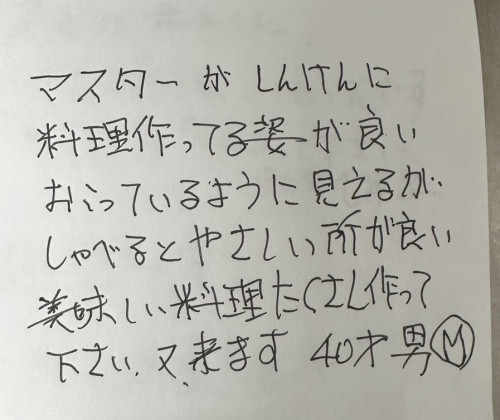 マスターが しんけんに
料理作ってる姿が良い
おこっているように見えるが、
しゃべるとやさしい所が良い
美味しい料理たくさん作って
下さい、又、来ます 40才男 M